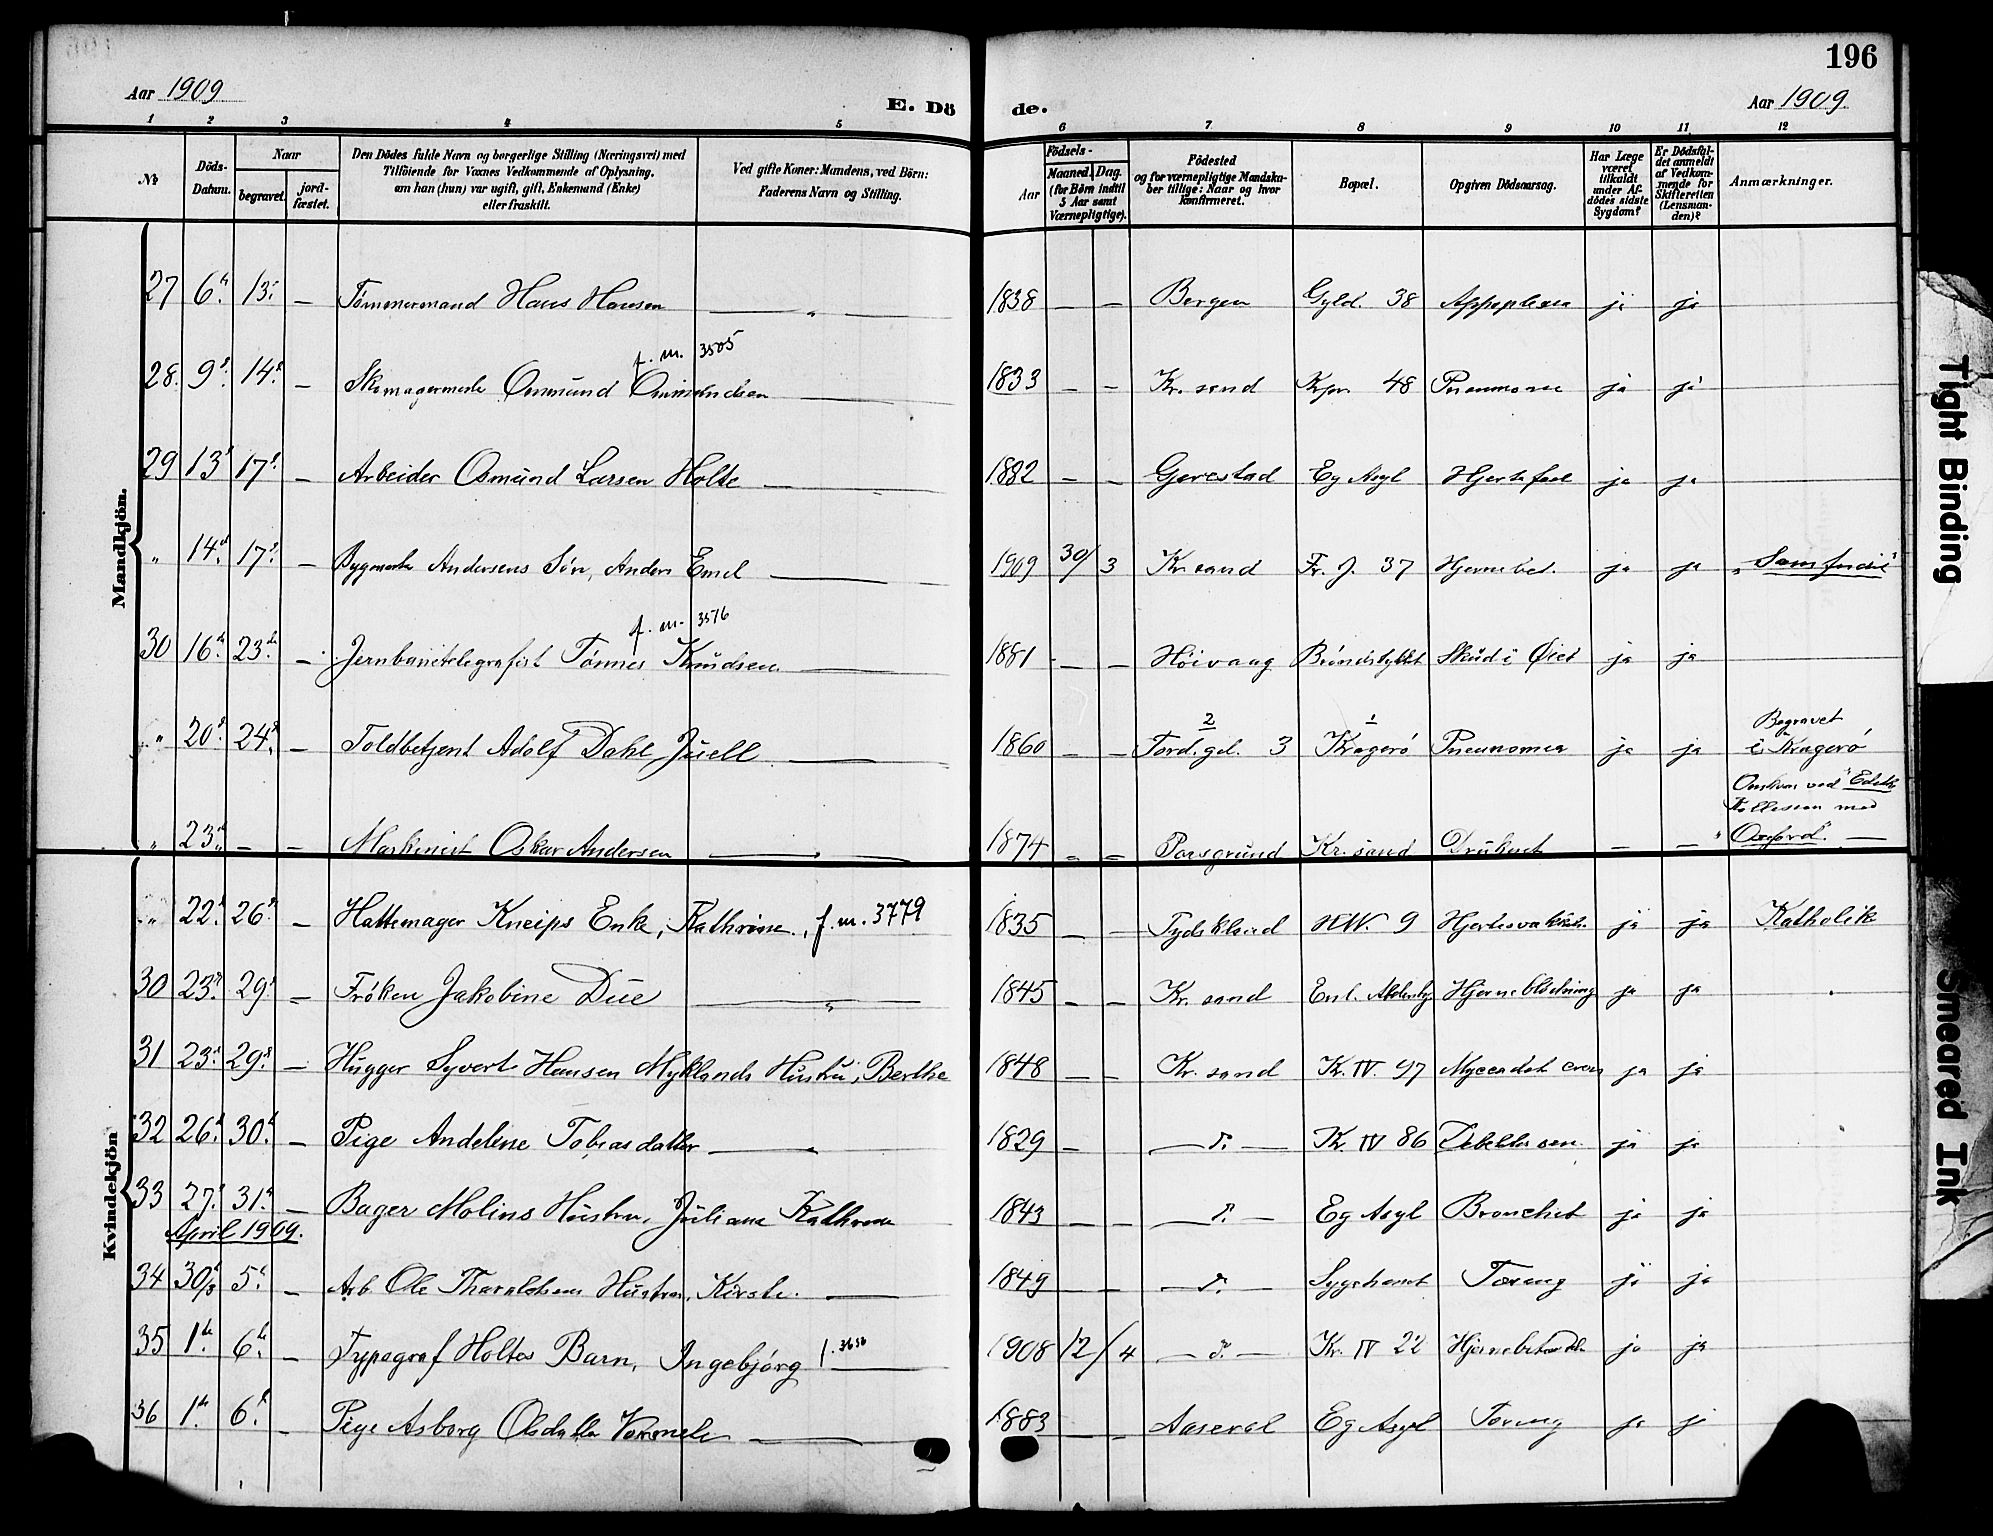 196
Aar 1909
E. Dö
de.
Aar 1909.
1 2 3 4 5 6 7 8 9 10 11 12
No
Döds-Datum.
Naar
begravet.
jord-fæstet.
Den Dödes fulde Navn og borgerlige Stilling (Næringsvei) med Tilföiende for Voxnes Vedkommende af Oplysning, om han (hun) var ugift, gift, Enkemand (Enke) eller fraskilt.
Ved gifte Koner: Mandens, ved Börn: Faderens Navn og Stilling.
Födsels-
Aar
Maaned. Dag. (for Börn indtil 5 Aar samt Værnepligtige).
Födested og for værnepligtige Mandskaber tillige: Naar og hvor konfirmeret.
Bopæl.
Opgiven Dödsaarsag.
Har Læge været tilkaldt under Afdödes sidste Sygdom?
Er Dödsfaldet anmeldt af Vedkommende for Skifteretten (Lensmanden)?
Anmærkninger.
Mandkjön.
27 6te 13. — Tömmermand Hans Hansen — " — 1838 — — Bergen Gyld. 38 Appoplexia ja ja
f. m. 3505
28. 9de 14de — Skomagermester Ommund Ommundsen — 1833 — — Kr. sand Kpr. 48 Pneumonie ja ja
29 13de 17de — Arbeider Osmund Larsen Holte — 1882 — — Gjerestad Eg Asyl Hjertefeil ja ja
" 14de 17de — Bygmester Andersens Sön, Anders Emil — 1909 30/3 Kr. sand Fr. J. 37 Hjernebet. ja ja „Samfund"
f. m. 3576
30 16de 23de — Jernbanetelegrafist Tönnes Knudsen — 1881 — — Höivaag Bröndstykket Skud i Öiet ja ja
" 20de 24de — Toldbetjent Adolf Dahl Juell — 1860 — — 2 Tord. gd. 3 1 Kragerö Pneunomia ja ja Begravet i Kragerö
" 23de — — Maskinist Oskar Andersen — " — 1874 — — Porsgrund Kr. sand Druknet — — Omkom ved „Ediths" Kollision med „Oxford". —
Kvindekjön
" 22de 26de — Hattemager Kneips Enke, Kathrine, f. m. 3779 1835 — — Tydskland H.W. 9 ja ja Katholik
30 23de 29de — Fröken Jakobine Due — " — 1845 — — Kr. sand Hjerneblödning ja ja
31 23de 29de — Hugger Syvert Hansen Myklands Hustru, Berthe 1848 — — Kr. sand Kr. IV. 97 ja ja
32 26de 30te — Pige Andeline Tobiasdatter — 1829 — — do. — Kr. IV 86 ja ja
33 27de 31te — Bager Molins Hustru, Juliane Kathrine 1843 — — — do. — Eg Asyl Bronchit ja ja
April 1909.
34 30/3 5te — Arb. Ole Tharaldsens Hustru, Kirste. — 1849 — — — do. — Sygehuset Tæring ja ja
35 1te 6te — Typograf Holtes Barn, Ingebjörg f. 3656 — 1908 12/4 — do. — Kr. IV 22 ja ja
36 1te 6te — Pige Asborg Olsdatter — 1883 — — Aaseral Eg Asyl Tæring ja ja
Tight Binding
Smeared Ink